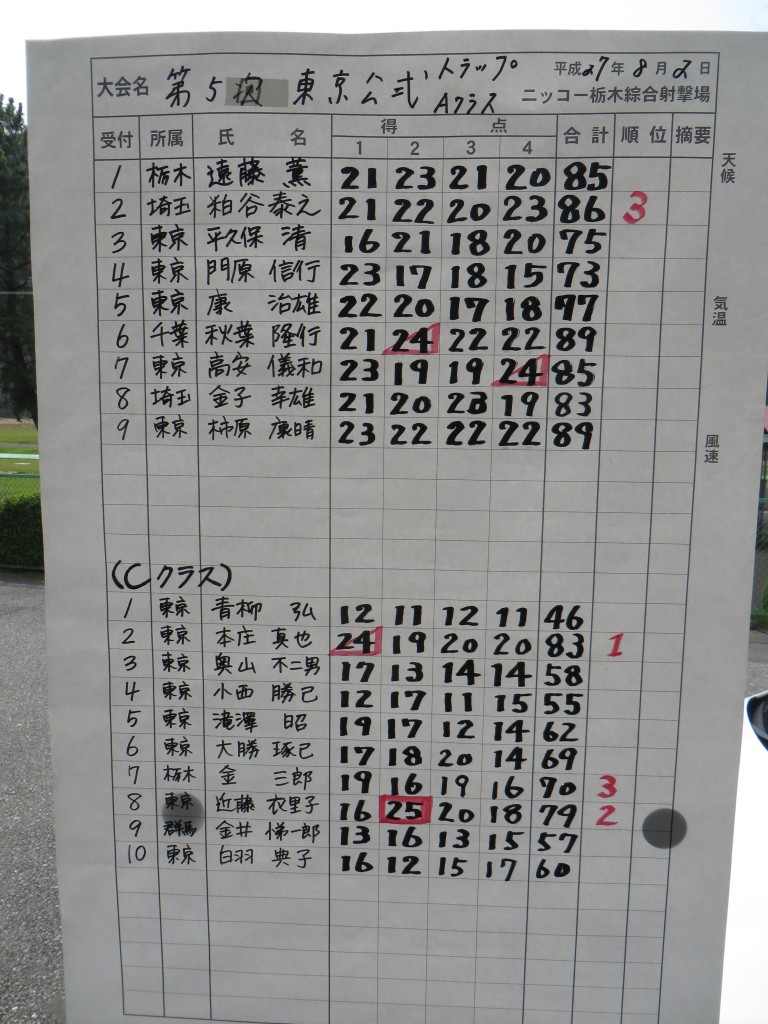 大会名 第5次 東京公式 トラップ Aクラス
平成27年8月2日
ニッコー栃木綜合射撃場
受付 所属 氏名 得点 1 2 3 4 合計 順位 摘要
1 栃木 遠藤 薫 21 23 21 20 85
2 埼玉 粕谷泰之 21 22 20 23 86 3
3 東京 平久保 清 16 21 18 20 75
4 東京 門原 信行 23 17 18 15 73
5 東京 康 治雄 22 20 17 18 77
6 千葉 秋葉 隆行 21 24 22 22 89
7 東京 高安 儀和 23 19 19 24 85
8 埼玉 金子 幸雄 21 20 23 19 83
9 東京 柿原 康晴 23 22 22 22 89
(Cクラス)
1 東京 青柳 弘 12 11 12 11 46
2 東京 本庄 真也 24 19 20 20 83 1
3 東京 奥山 不二男 17 13 14 14 58
4 東京 小西 勝己 12 17 11 15 55
5 東京 滝澤 昭 19 17 12 14 62
6 東京 大勝 琢己 17 18 20 14 69
7 栃木 金 三郎 19 16 19 16 70 3
8 東京 近藤 衣里子 16 25 20 18 79 2
9 群馬 金井 悌一郎 13 16 13 15 57
10 東京 白羽 典子 16 12 15 17 60
天候
気温
風速